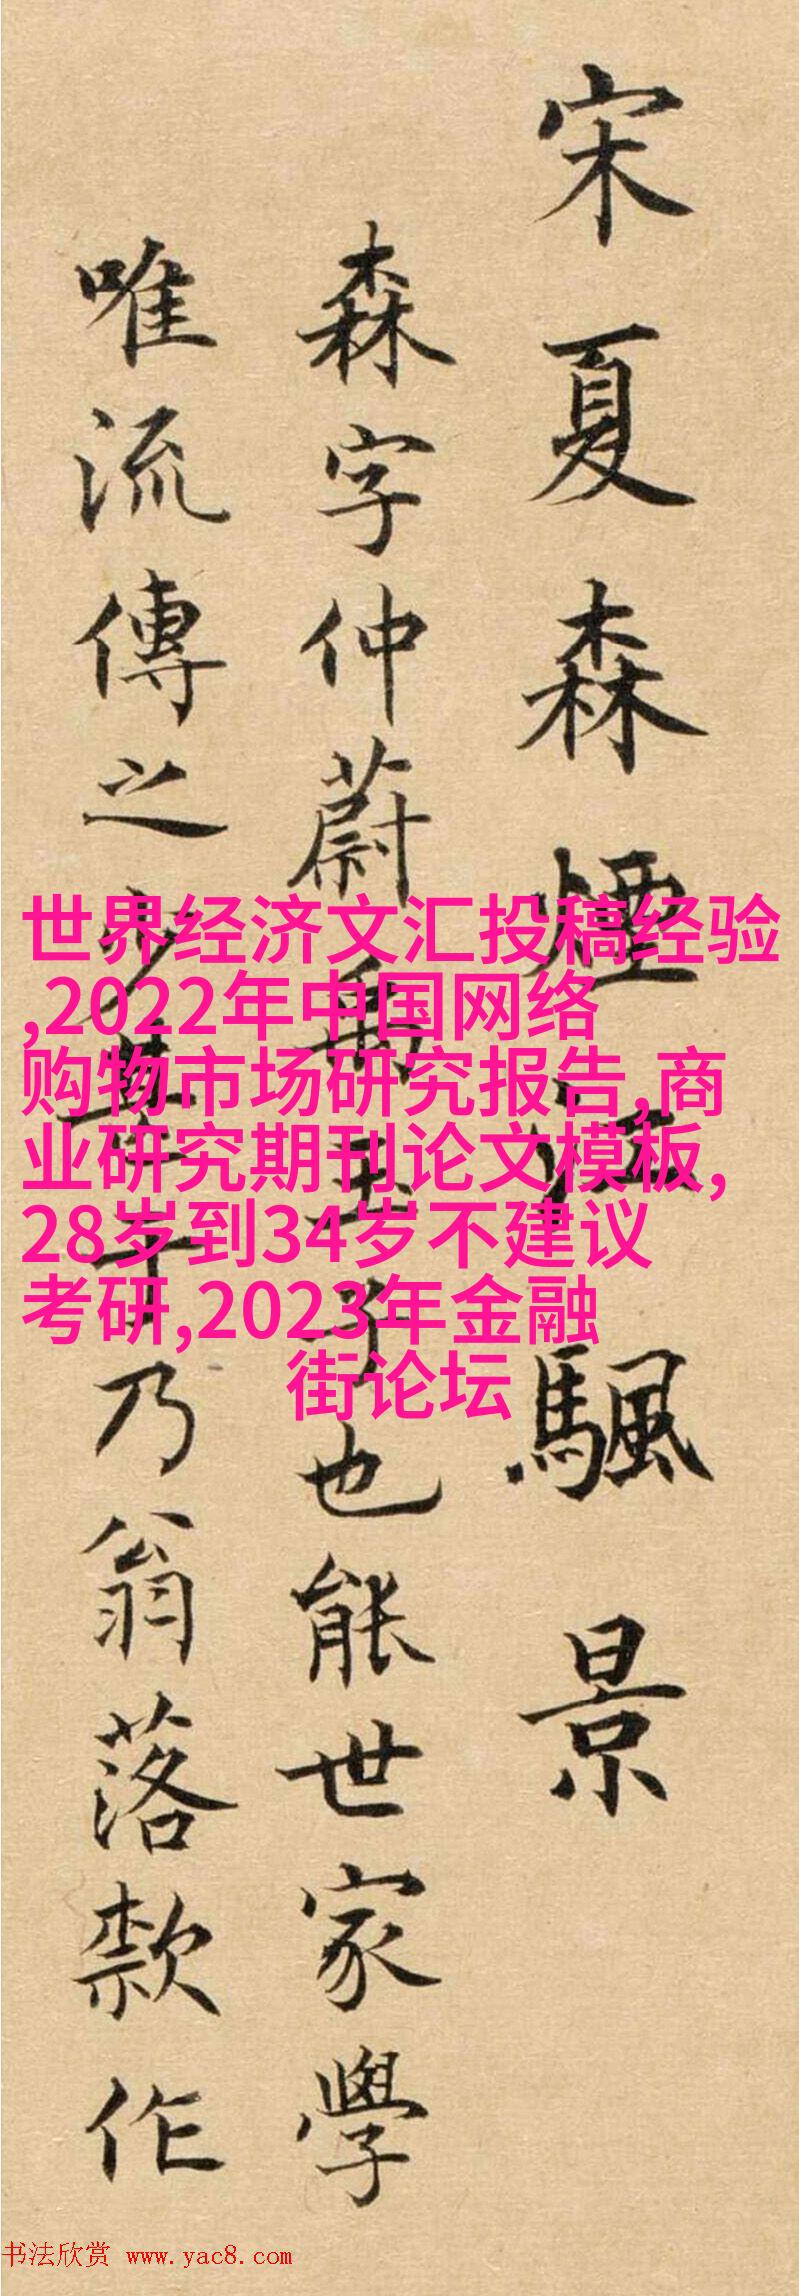 宋夏森煙江颿景
森字仲蔚禹玉子也能世家學
唯流傳之少甚于乃翁落款作
世界经济文汇投稿经验
,2022年中国网络
购物市场研究报告,商
业研究期刊论文模板,
28岁到34岁不建议
考研,2023年金融
街论坛
书法欣赏 www.yac8.com